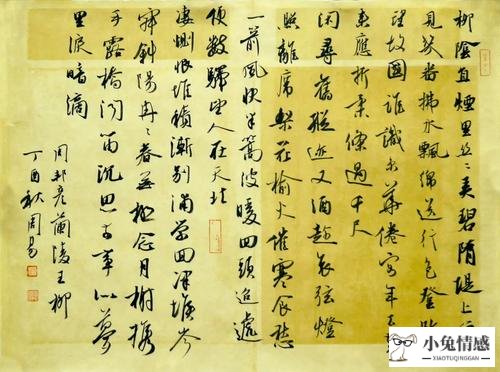 柳陰直煙里絲絲弄碧隋堤上
見幾番拂水飄綿送行色登臨
望故國誰識京華倦客年去
來應折柔條過千尺
閑尋舊蹤迹又酒趁哀弦燈
照離席梨花榆火催寒食愁
一箭風快半篙波暖回頭迢遞
便數驛望人在天北
凄惻恨堆積漸別浦縈回津堠岑
寂斜陽冉冉春無極念月榭攜
手露橋聞笛沉思前事似夢
里淚暗滴
周邦彥蘭陵王柳
丁酉秋周易
小兔情感
XIAOTUQINGGAN